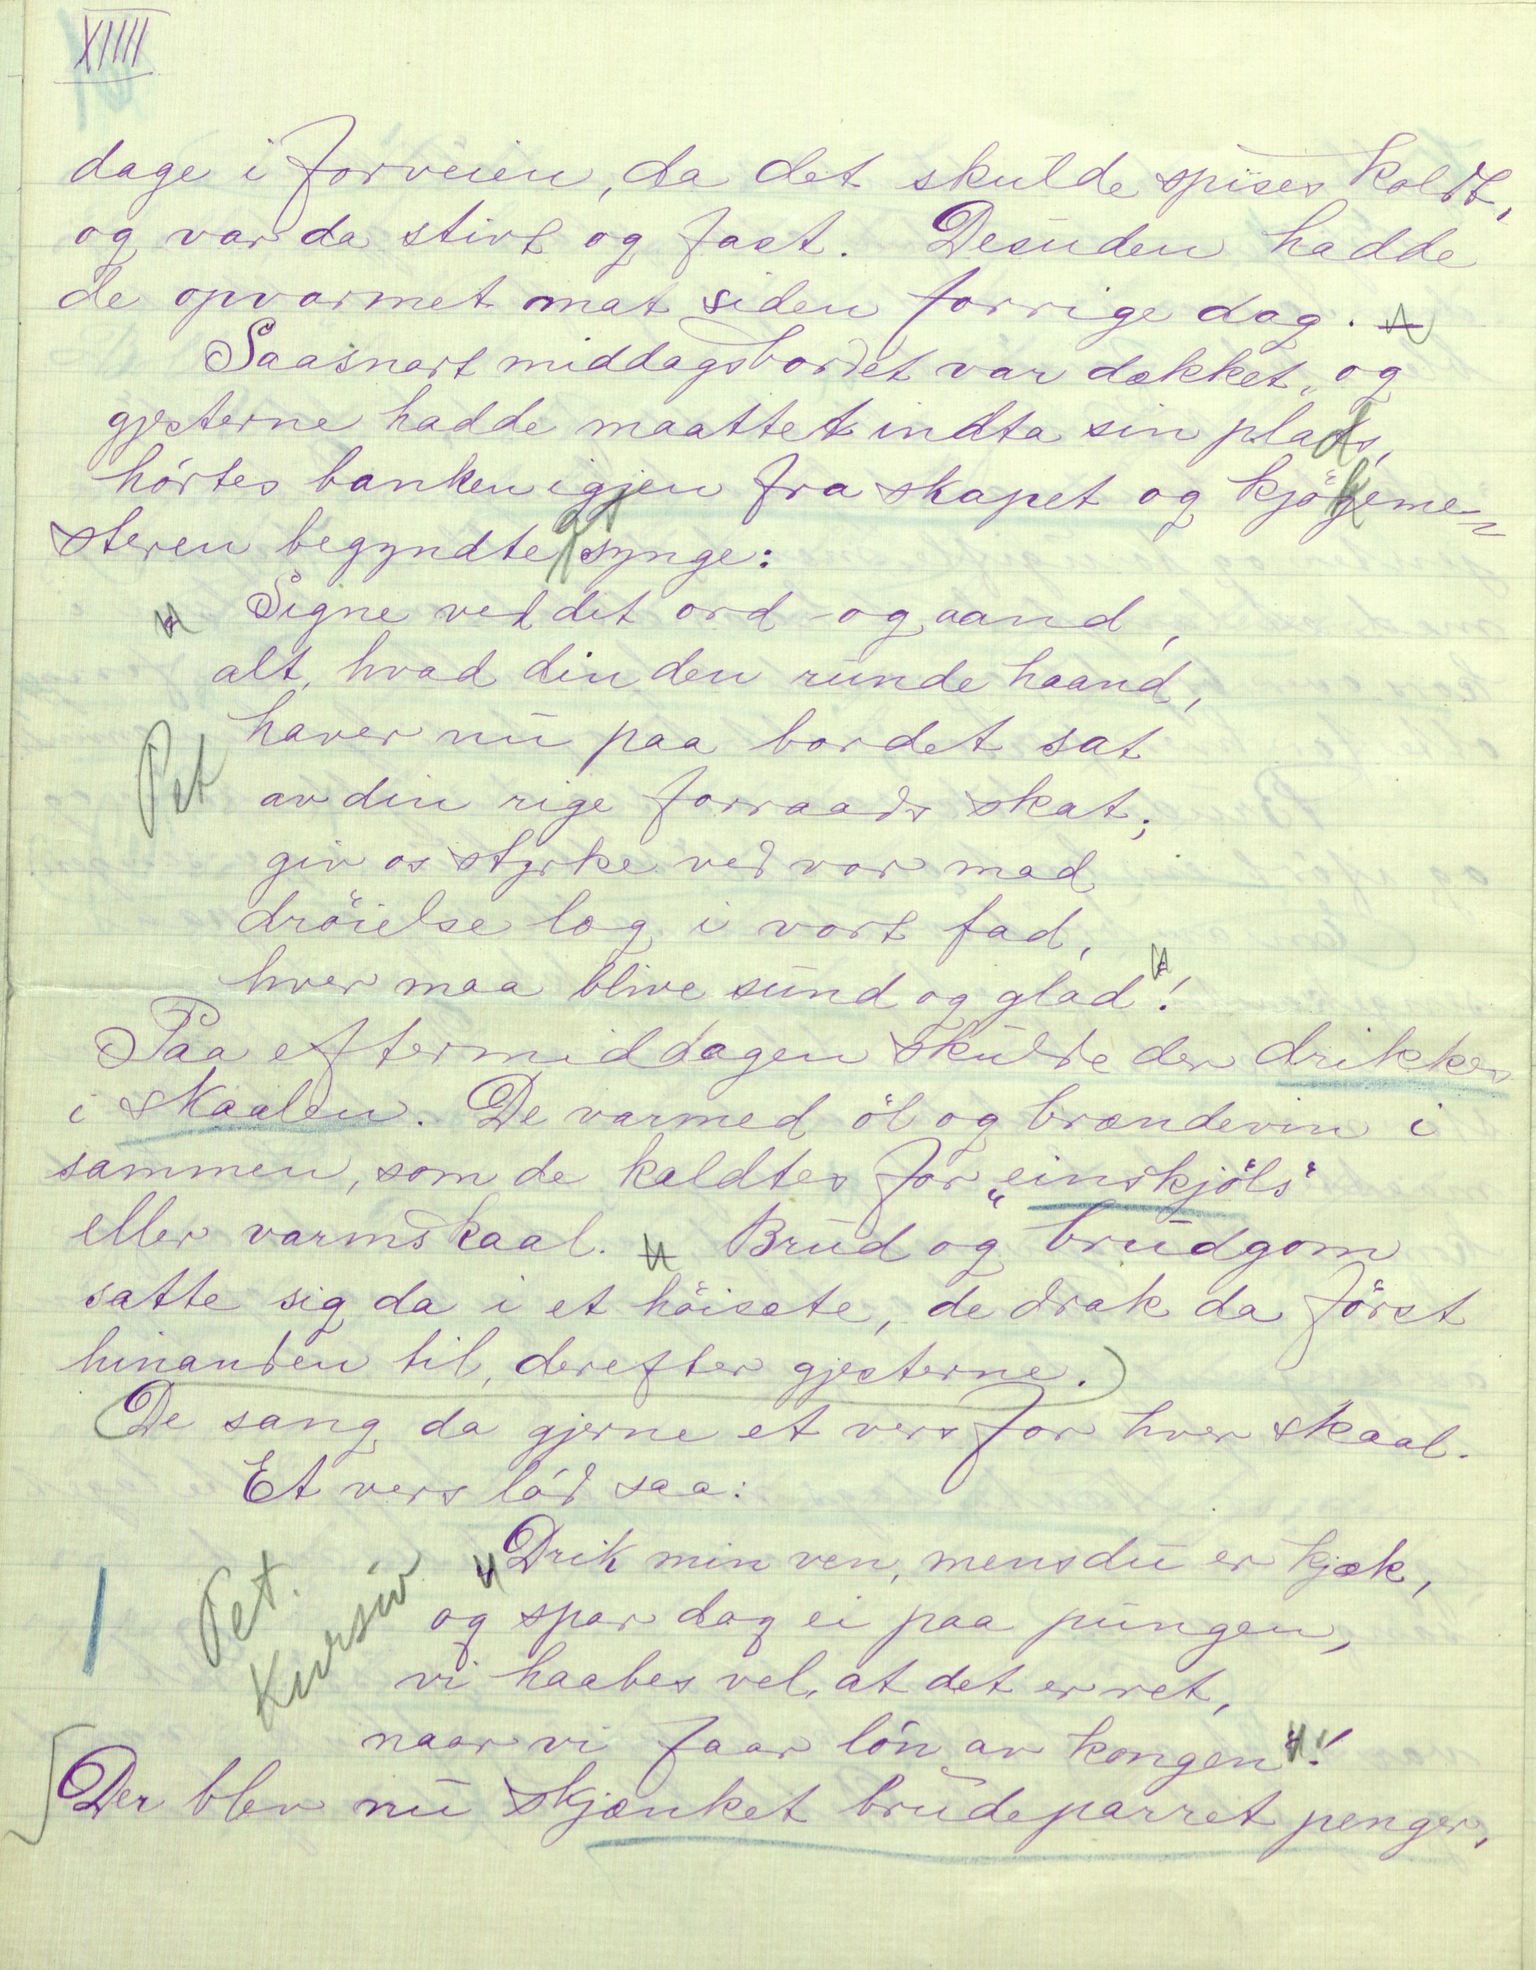 XIIII
dage i forveien, da det skulde spises koldt,
og var da stivt og fast. Desuden hadde
de opvarmet mat siden forrige dag.
Saasnart middagsbordet var dækket, og
gjesterne hadde maattet indta sin plads,
hørtes banken igjen fra skapet og kjøkeme-
steren begyndte at synge:
"Signe ved dit ord og aand,
alt, hvad din den runde haand,
haver nu paa bordet sat
Pet
av din rige forraads skat;
giv os styrke ved vor mad
drøielse læg i vort fad,
hver maa blive sund og glad"!
Paa eftermiddagen skulde der drikkes
i skaalen. De varmed øl og brændevin i
sammen, som de kaldtes for „einskjøls"
eller varmskaal. Brud og brudgom
satte sig da i et høisæte, de drak da først
hinanden til, derefter gjesterne.
De sang da gjerne et vers for hver skaal.
Et vers lød saa:
"Drik min ven, mens du er kjæk,
Pet.
Kursiv
og spar dog ei paa pungen,
vi haabes vel, at det er ret,
naar vi faar løn av kongen"!
Der blev nu skjænket brudeparret penger,